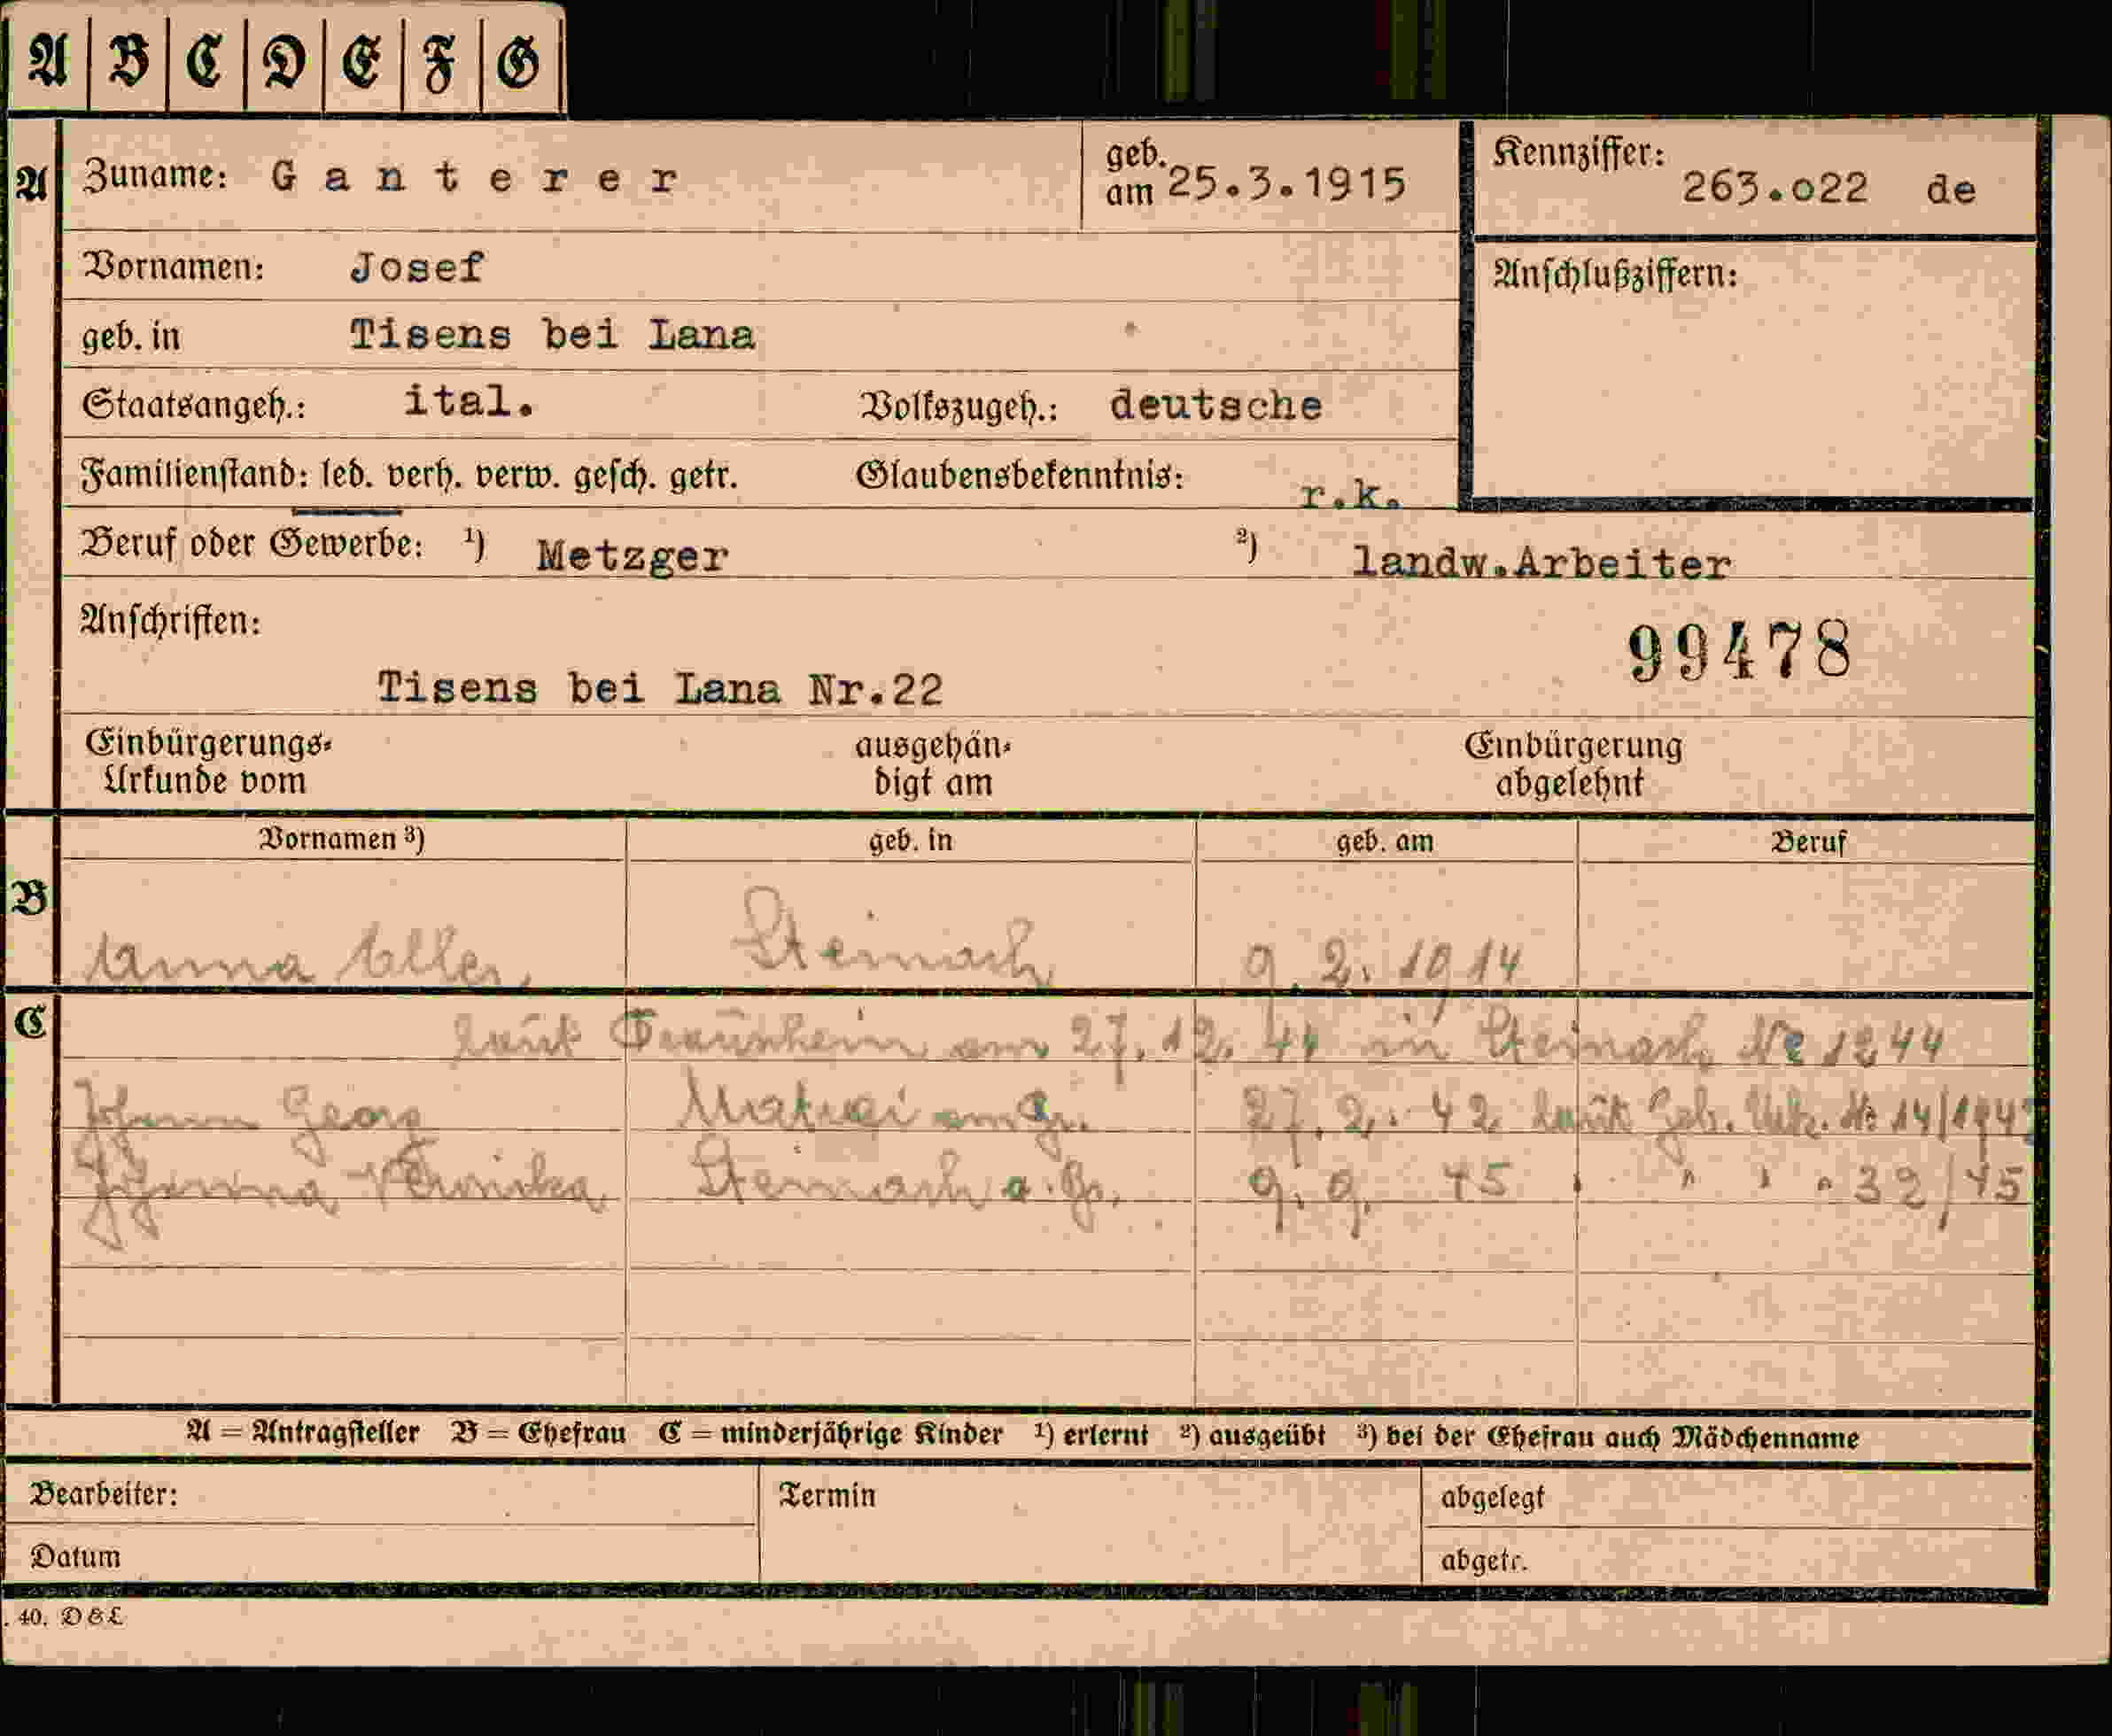 A B C D E F G
A Zuname: Ganterer geb. am 25.3.1915 Kennziffer: 263.o22 de
Vornamen: Josef Anschlußziffern:
geb. in Tisens bei Lana
Staatsangeh.: ital. Volkszugeh.: deutsche
Familienstand: led. verh. verw. gesch. getr. Glaubensbekenntnis: r.k.
Beruf oder Gewerbe: ¹) Metzger ²) landw.Arbeiter
Anschriften:
99478
Tisens bei Lana Nr.22
Einbürgerungs- ausgehän- Einbürgerung
Urkunde vom digt am abgelehnt
Vornamen ³) geb. in geb. am Beruf
B
Anna Eller, Steinach 9.2.1914
C
laut Trauschein am 27.12.41 in Steinach Nr 1244
Johann Georg Matrei am Br. 27.2.42 laut Geb. Urk. Nr 14/1942
Johanna Veronika Steinach a. Br. 9.9.45 " " " " 32/45
A = Antragsteller B = Ehefrau C = minderjährige Kinder ¹) erlernt ²) ausgeübt ³) bei der Ehefrau auch Mädchenname
Bearbeiter: Termin abgelegt
Datum abgetr.
. 40. D & L